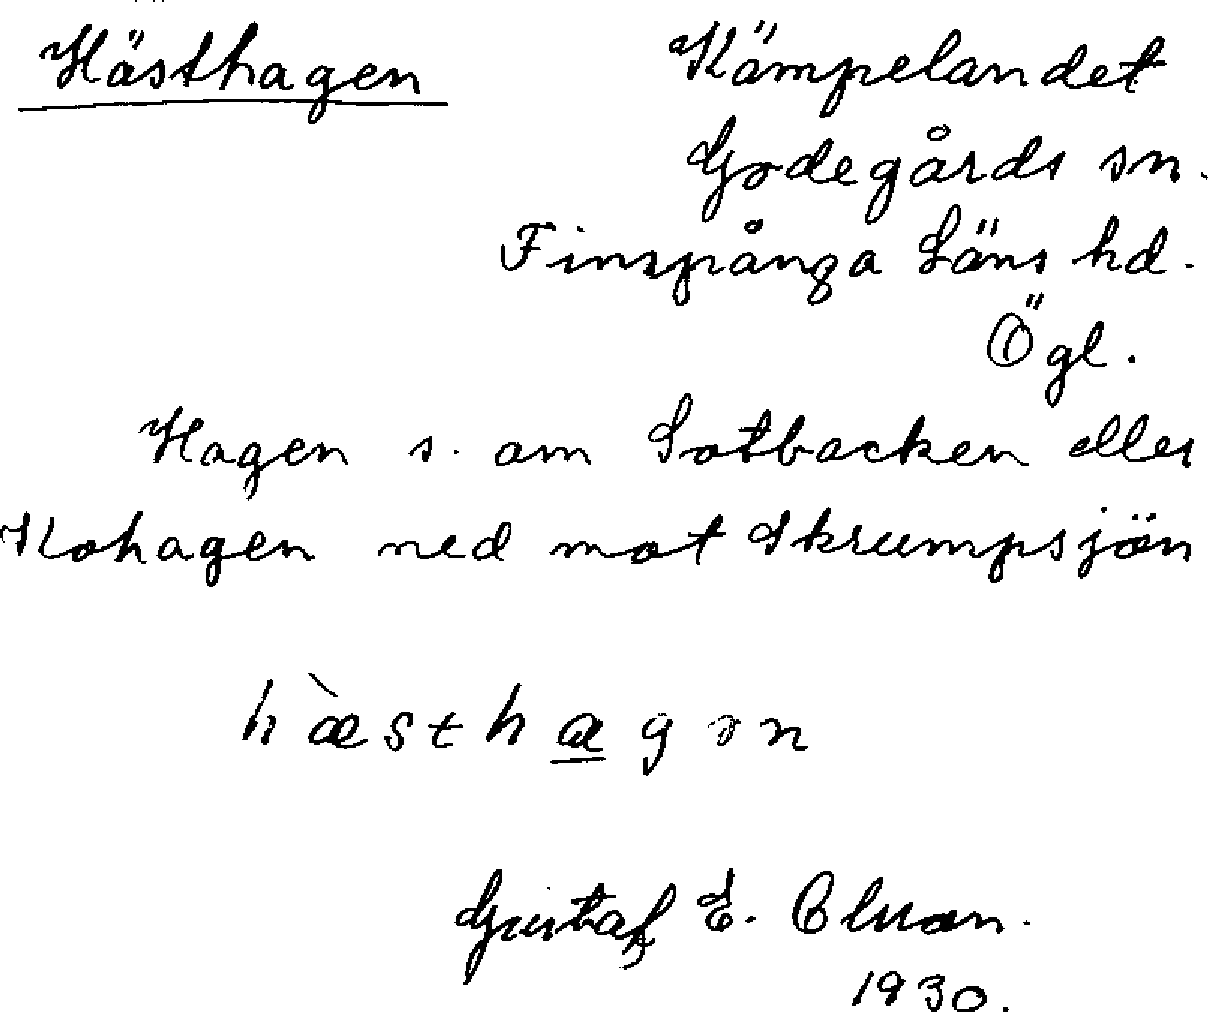 Hästhagen
Kämpelandet
Godegårds sn.
Finspånga Läns hd.
Ögl.
Hagen s. om Sotbacken eller
Kohagen ned mot Skrumpsjön
hæ̀sthagən
Gustaf E.
1930.